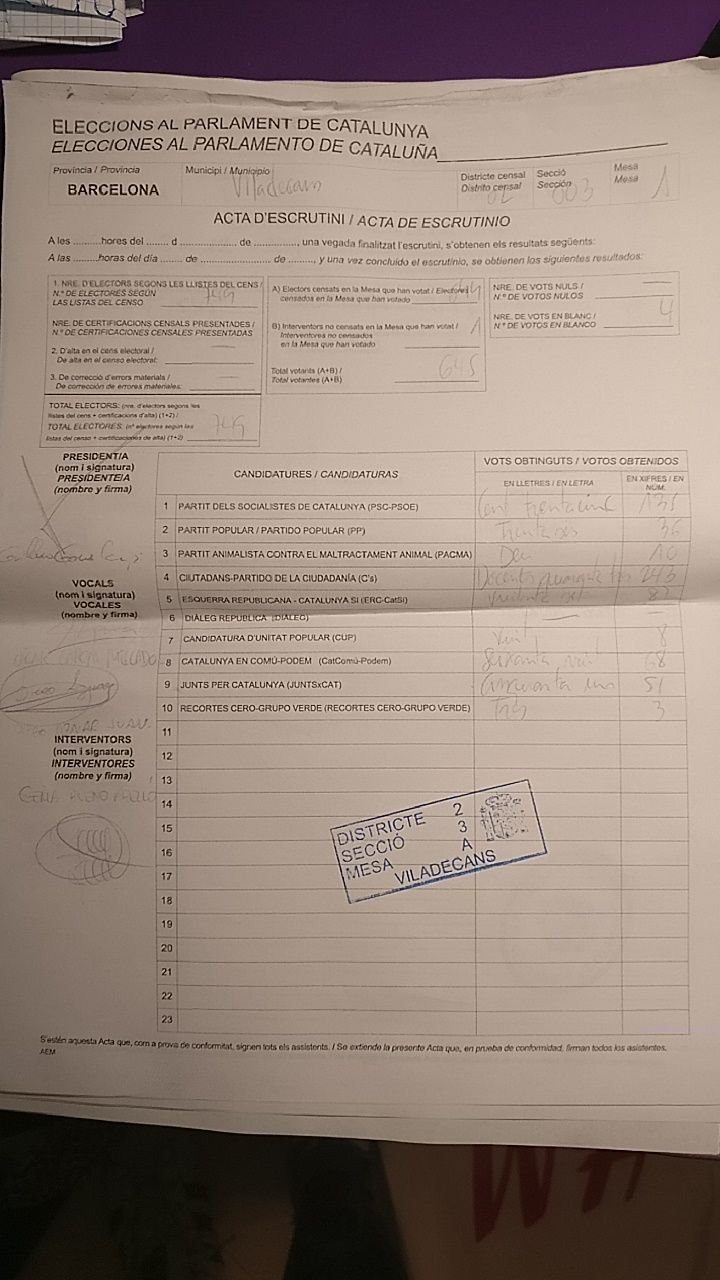 ELECCIONS AL PARLAMENT DE CATALUNYA
ELECCIONES AL PARLAMENTO DE CATALUÑA
Província / Provincia
BARCELONA
Municipi / Municipio
Viladecans
Districte censal
Distrito censal
02
Secció
Sección
003
Mesa
Mesa
ACTA D'ESCRUTINI / ACTA DE ESCRUTINIO
A les ..........hores del ........ d ........................ de ..............., una vegada finalitzat l'escrutini, s'obtenen els resultats següents:
A las ..........horas del día ........ de ........................ de .............., y una vez concluido el escrutinio, se obtienen los siguientes resultados:
1. NRE. D'ELECTORS SEGONS LES LLISTES DEL CENS /
N.º DE ELECTORES SEGÚN
LAS LISTAS DEL CENSO
NRE. DE CERTIFICACIONS CENSALS PRESENTADES /
N.º DE CERTIFICACIONES CENSALES PRESENTADAS
2. D'alta en el cens electoral /
De alta en el censo electoral:
3. De correcció d'errors materials /
De corrección de errores materiales:
TOTAL ELECTORS: (nre. d'electors segons les
llistes del cens + certificacions d'alta) (1+2) /
TOTAL ELECTORES: (nº electores según las
listas del censo + certificaciones de alta) (1+2)
A) Electors censats en la Mesa que han votat / Electores
censados en la Mesa que han votado
B) Interventors no censats en la Mesa que han votat /
Interventores no censados
en la Mesa que han votado
1
Total votants (A+B) /
Total votantes (A+B)
645
NRE. DE VOTS NULS /
N.º DE VOTOS NULOS
NRE. DE VOTS EN BLANC /
N.º DE VOTOS EN BLANCO
4
PRESIDENT/A
(nom i signatura)
PRESIDENTE/A
(nombre y firma)
VOCALS
(nom i signatura)
VOCALES
(nombre y firma)
INTERVENTORS
(nom i signatura)
INTERVENTORES
(nombre y firma)
CANDIDATURES / CANDIDATURAS
VOTS OBTINGUTS / VOTOS OBTENIDOS
EN LLETRES / EN LETRA
EN XIFRES / EN NÚM.
1 PARTIT DELS SOCIALISTES DE CATALUNYA (PSC-PSOE) Cent trenta cinc 135
2 PARTIT POPULAR / PARTIDO POPULAR (PP) Trenta sis 36
3 PARTIT ANIMALISTA CONTRA EL MALTRACTAMENT ANIMAL (PACMA) Deu 10
4 CIUTADANS-PARTIDO DE LA CIUDADANÍA (C's) 243
5 ESQUERRA REPUBLICANA - CATALUNYA SI (ERC-CatSí) 87
6 DIÀLEG REPUBLICÀ (DIÀLEG) — —
7 CANDIDATURA D'UNITAT POPULAR (CUP) Vuit 8
8 CATALUNYA EN COMÚ-PODEM (CatComú-Podem) Seixanta vuit 68
9 JUNTS PER CATALUNYA (JUNTSxCAT) Cinquanta un 51
10 RECORTES CERO-GRUPO VERDE (RECORTES CERO-GRUPO VERDE) Tres 3
11
12
13
14
15
16
17
18
19
20
21
22
23
DISTRICTE 2
SECCIÓ 3
MESA A
VILADECANS
S'estén aquesta Acta que, com a prova de conformitat, signen tots els assistents. / Se extiende la presente Acta que, en prueba de conformidad, firman todos los asistentes.
AEM